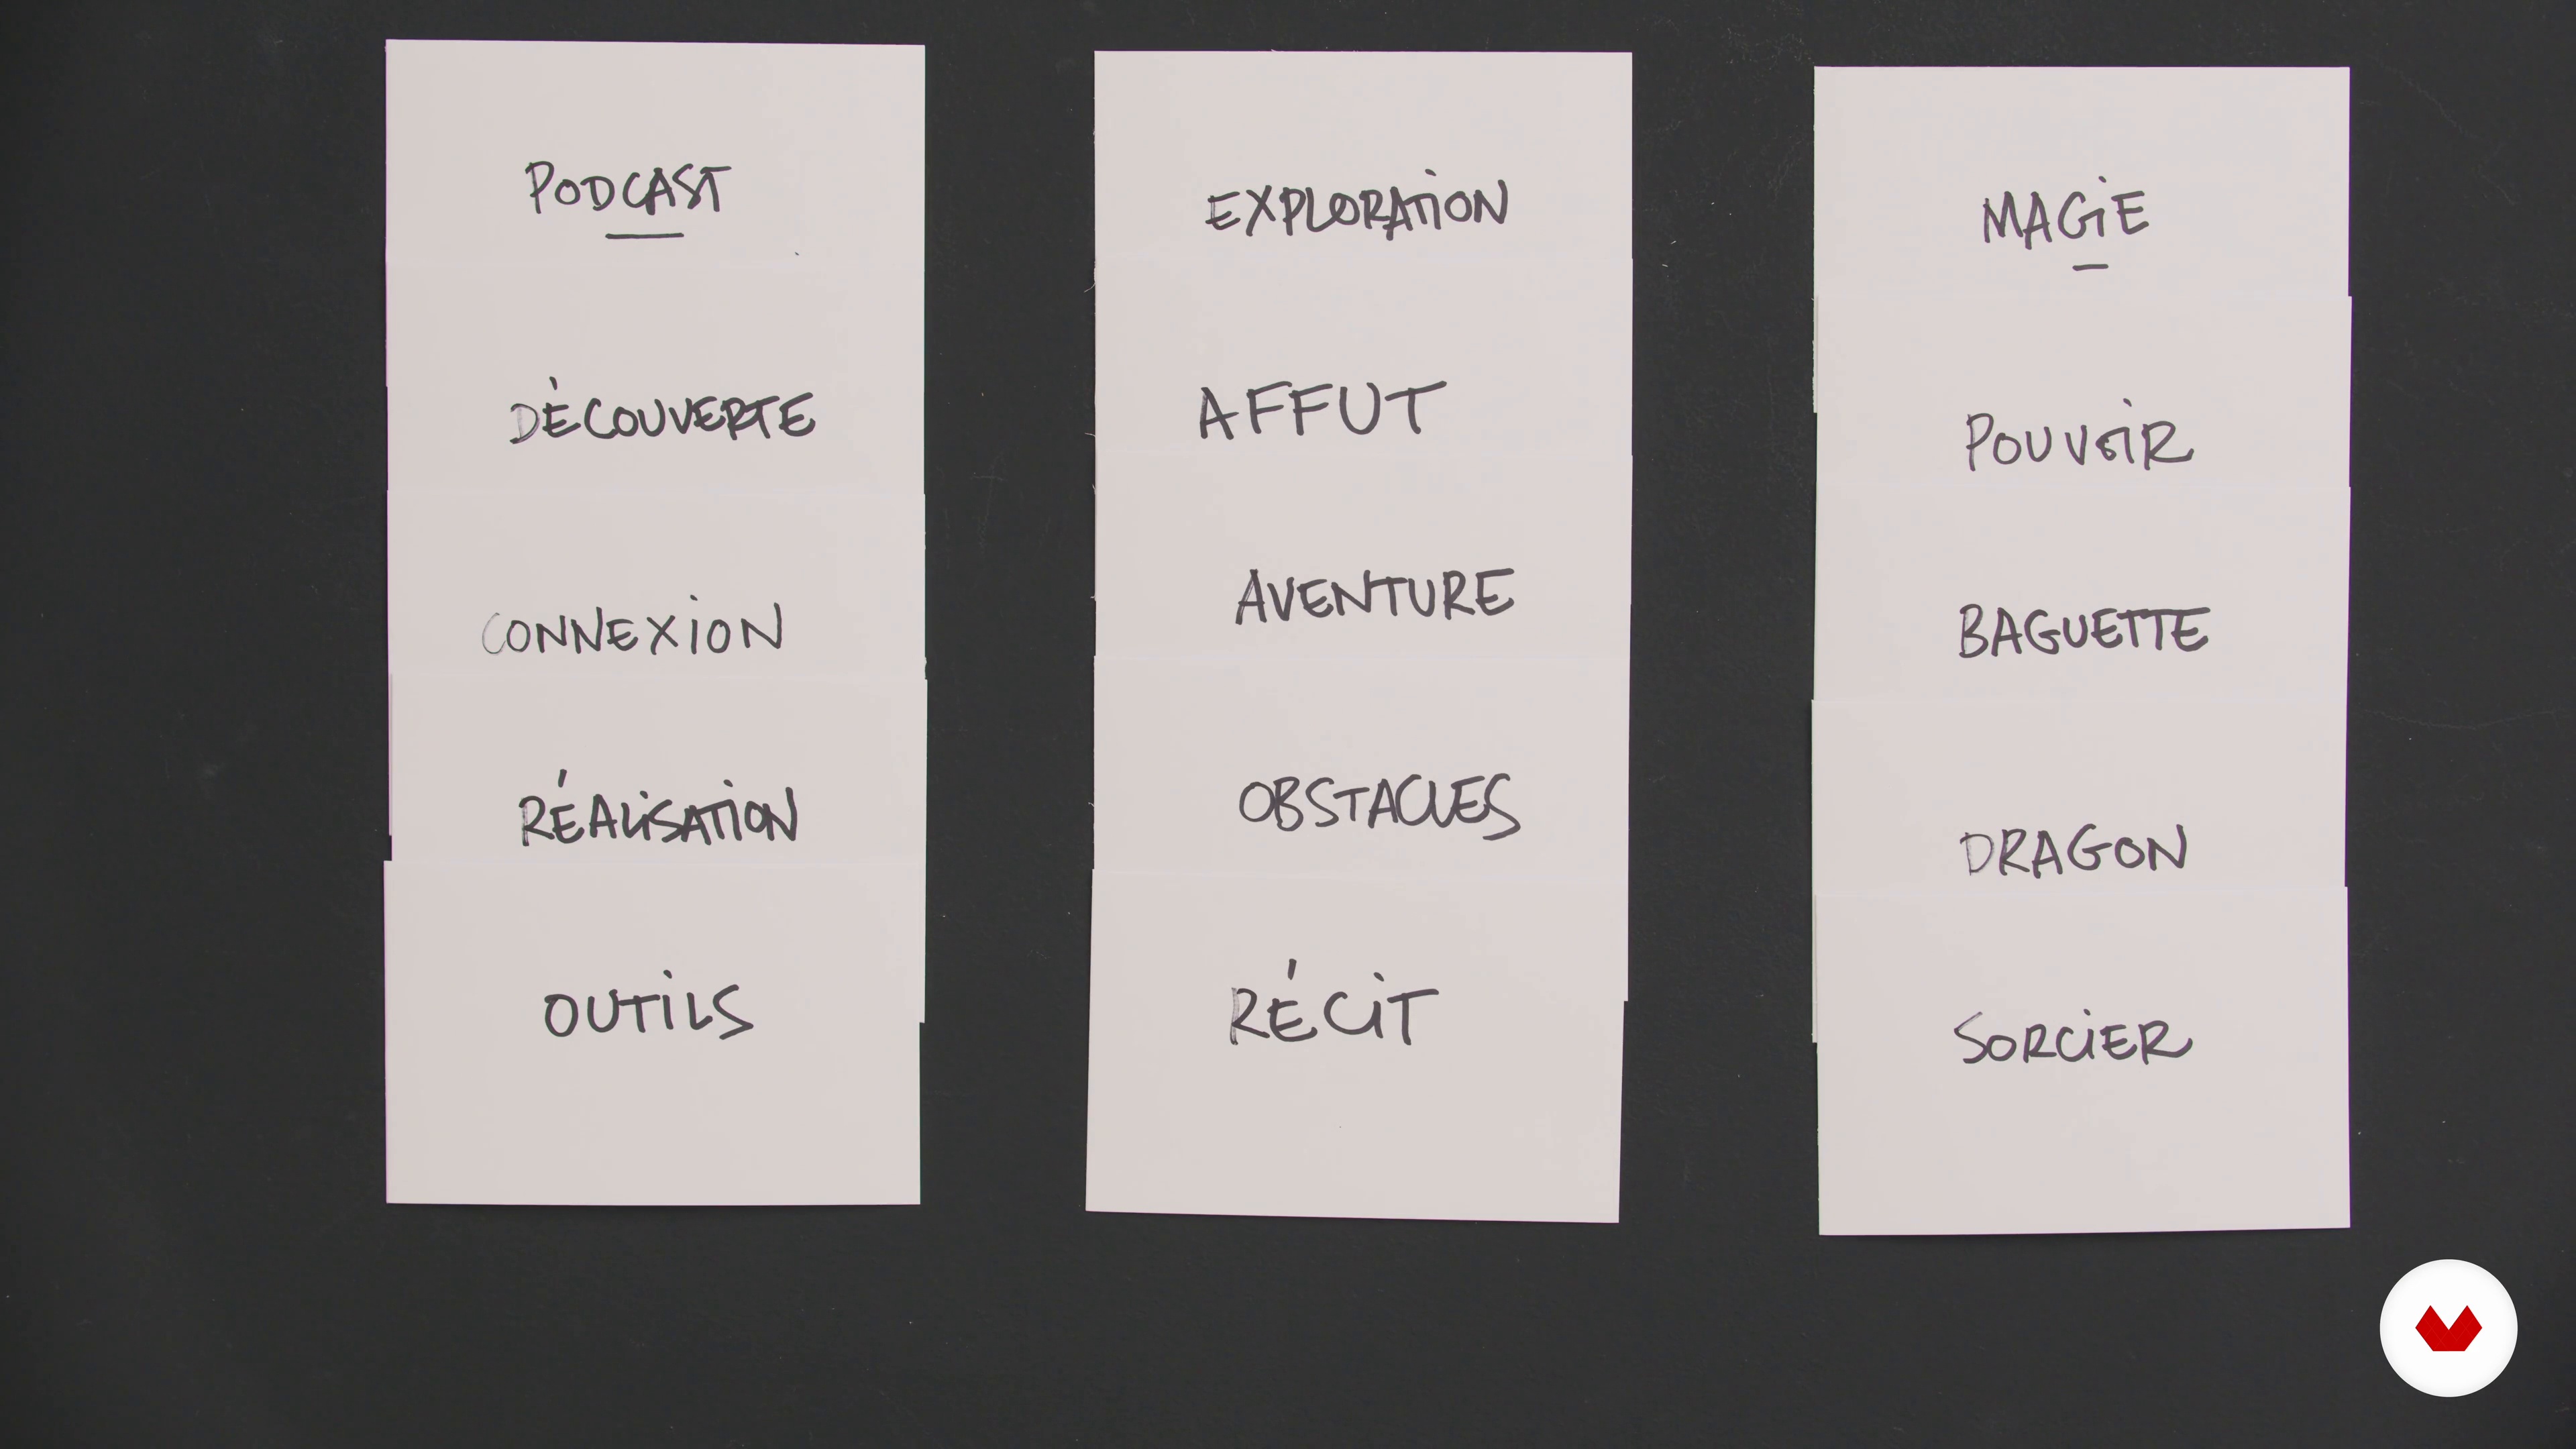 PODCAST
DÉCOUVERTE
CONNEXION
RÉALISATION
OUTILS
EXPLORATION
AFFUT
AVENTURE
OBSTACLES
RÉCIT
MAGIE
POUVOIR
BAGUETTE
DRAGON
SORCIER